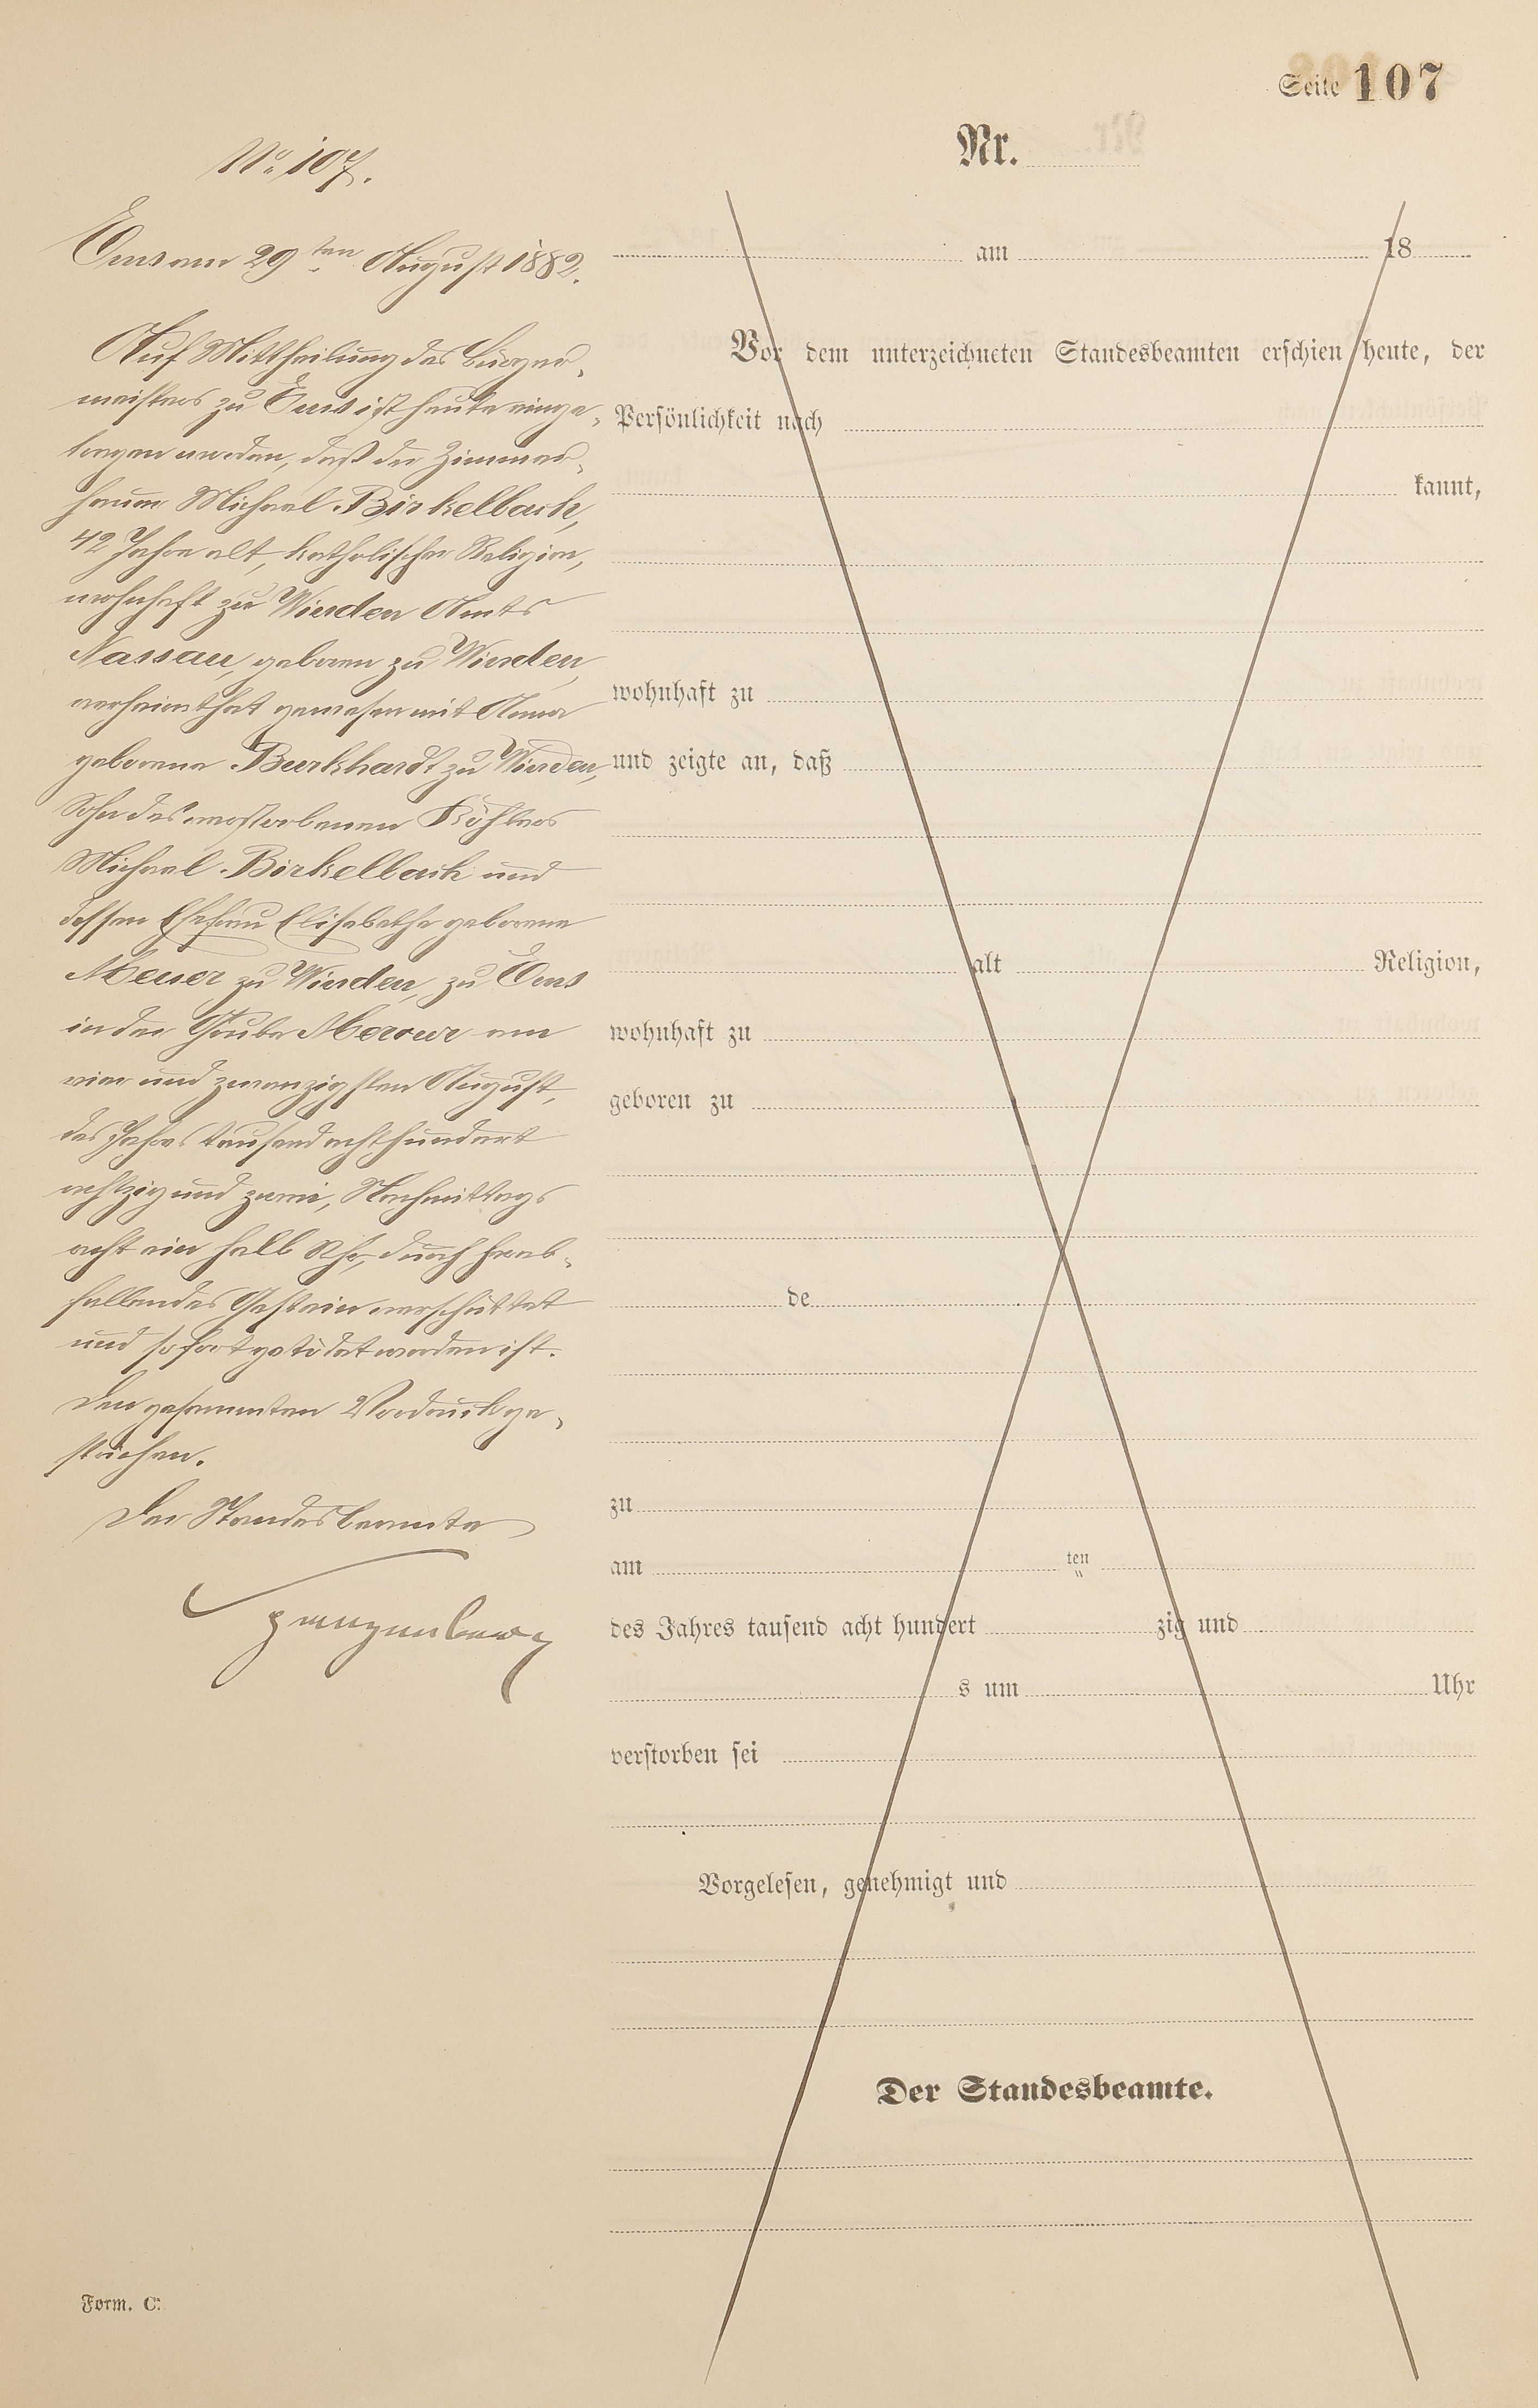 Seite 107
Nr.
No 107.
Ems am 29ten August 1882.
Auf Mittheilung des Bürger-
meisters zu Ems ist heute einge-
tragen worden, daß der Zimmer-
hauer Michael Birkelbach,
42 Jahre alt, katholischer Religion,
wohnhaft zu Winden Amts
Nassau, geboren zu Winden,
verheirathet gewesen mit Anna
geborene Burkhardt zu Winden,
Sohn des verstorbenen Köhlers
Michael Birkelbach und
dessen Ehefrau Elisabethe geborene
Meuser zu Winden, zu Ems
in der Grube Mercur am
vier und zwanzigsten August,
des Jahres tausend achthundert
achtzig und zwei, Nachmittags
acht ein halb Uhr, durch herab-
fallendes Gestein verschüttet
und sofort getödtet worden ist.
Den gesammten Vordruck ge-
strichen.
Der Standesbeamte
am 18
Vor dem unterzeichneten Standesbeamten erschien heute, der
Persönlichkeit nach
kannt,
wohnhaft zu
und zeigte an, daß
alt Religion,
wohnhaft zu
geboren zu
de
zu
am ten
des Jahres tausend acht hundert zig und
s um Uhr
verstorben sei
Vorgelesen, genehmigt und
Der Standesbeamte.
Form. C.